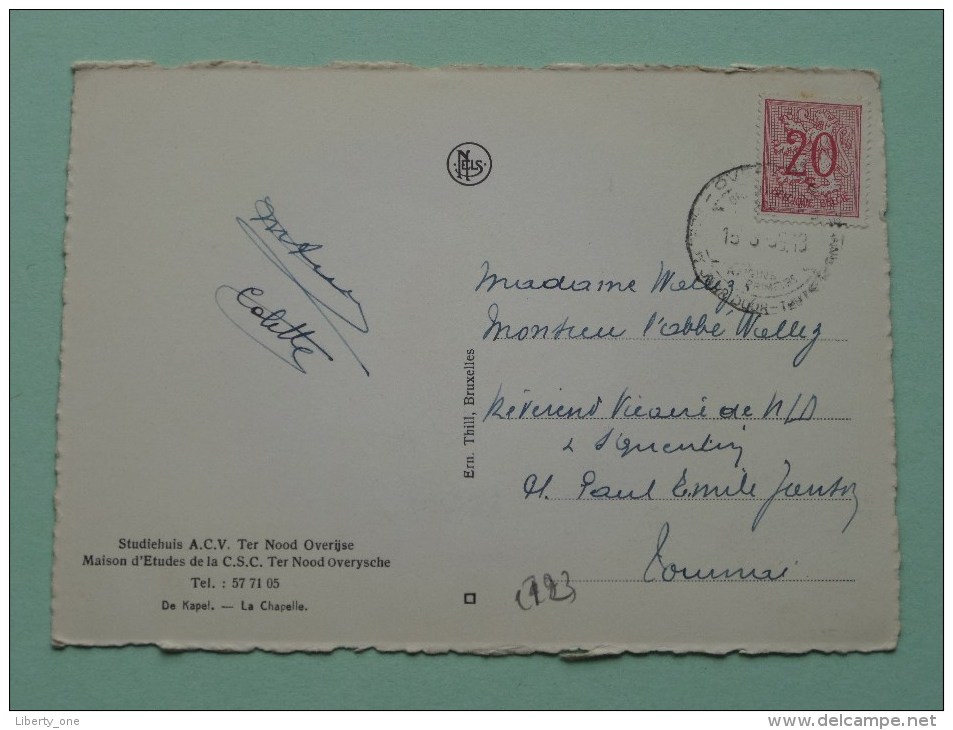 20
BELGIQUE-BELGIE
NELS
Colette
Madame Wallez
Monsieur l'abbé Wallez
Révérend Vicaire de N/D
St Quentin
Paul Emile Janson
Tournai
Ern. Thill, Bruxelles
Studiehuis A.C.V. Ter Nood Overijse
Maison d'Etudes de la C.S.C. Ter Nood Overysche
Tel. : 57 71 05
De Kapel. — La Chapelle.
Liberty_one
www.delcampe.net